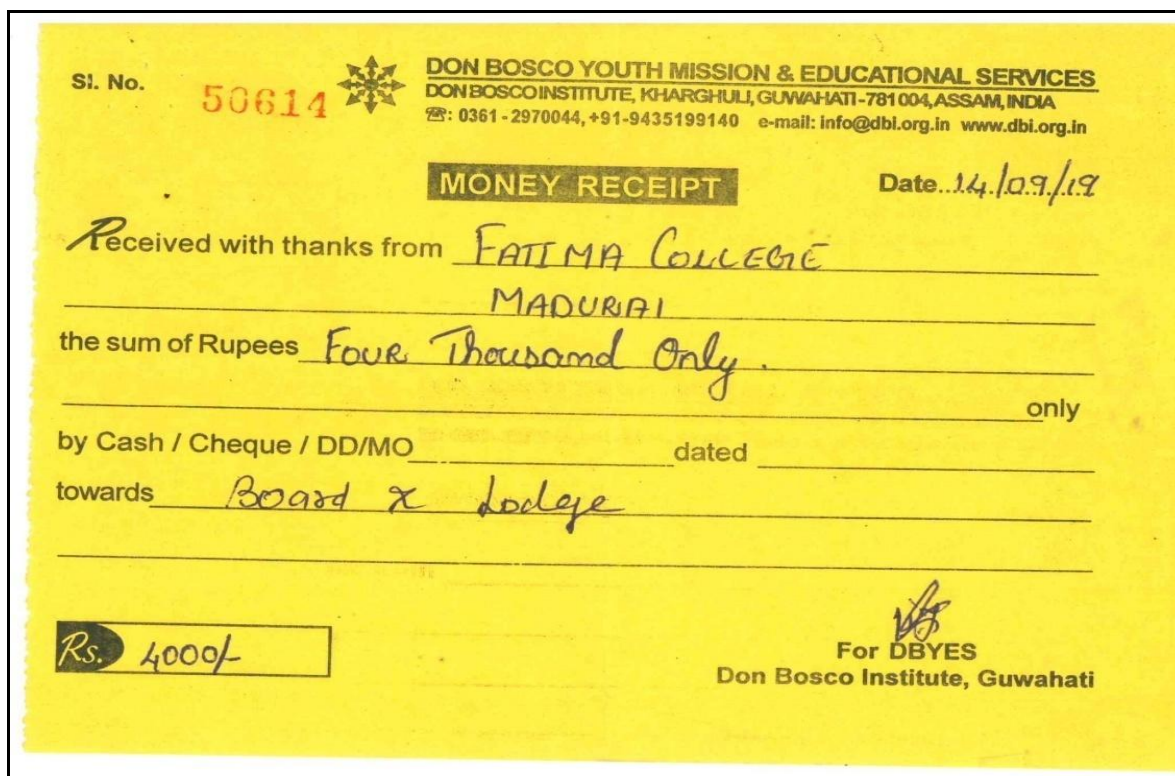 Sl. No. 50614
DON BOSCO YOUTH MISSION & EDUCATIONAL SERVICES
DON BOSCO INSTITUTE, KHARGHULI, GUWAHATI - 781 004, ASSAM, INDIA
☎: 0361 - 2970044, +91-9435199140 e-mail: info@dbi.org.in www.dbi.org.in
MONEY RECEIPT
Date 14/09/19
Received with thanks from FATIMA COLLEGE
MADURAI
the sum of Rupees FOUR Thousand Only.
only
by Cash / Cheque / DD/MO dated
towards Board & Lodge
Rs. 4000/-
For DBYES
Don Bosco Institute, Guwahati